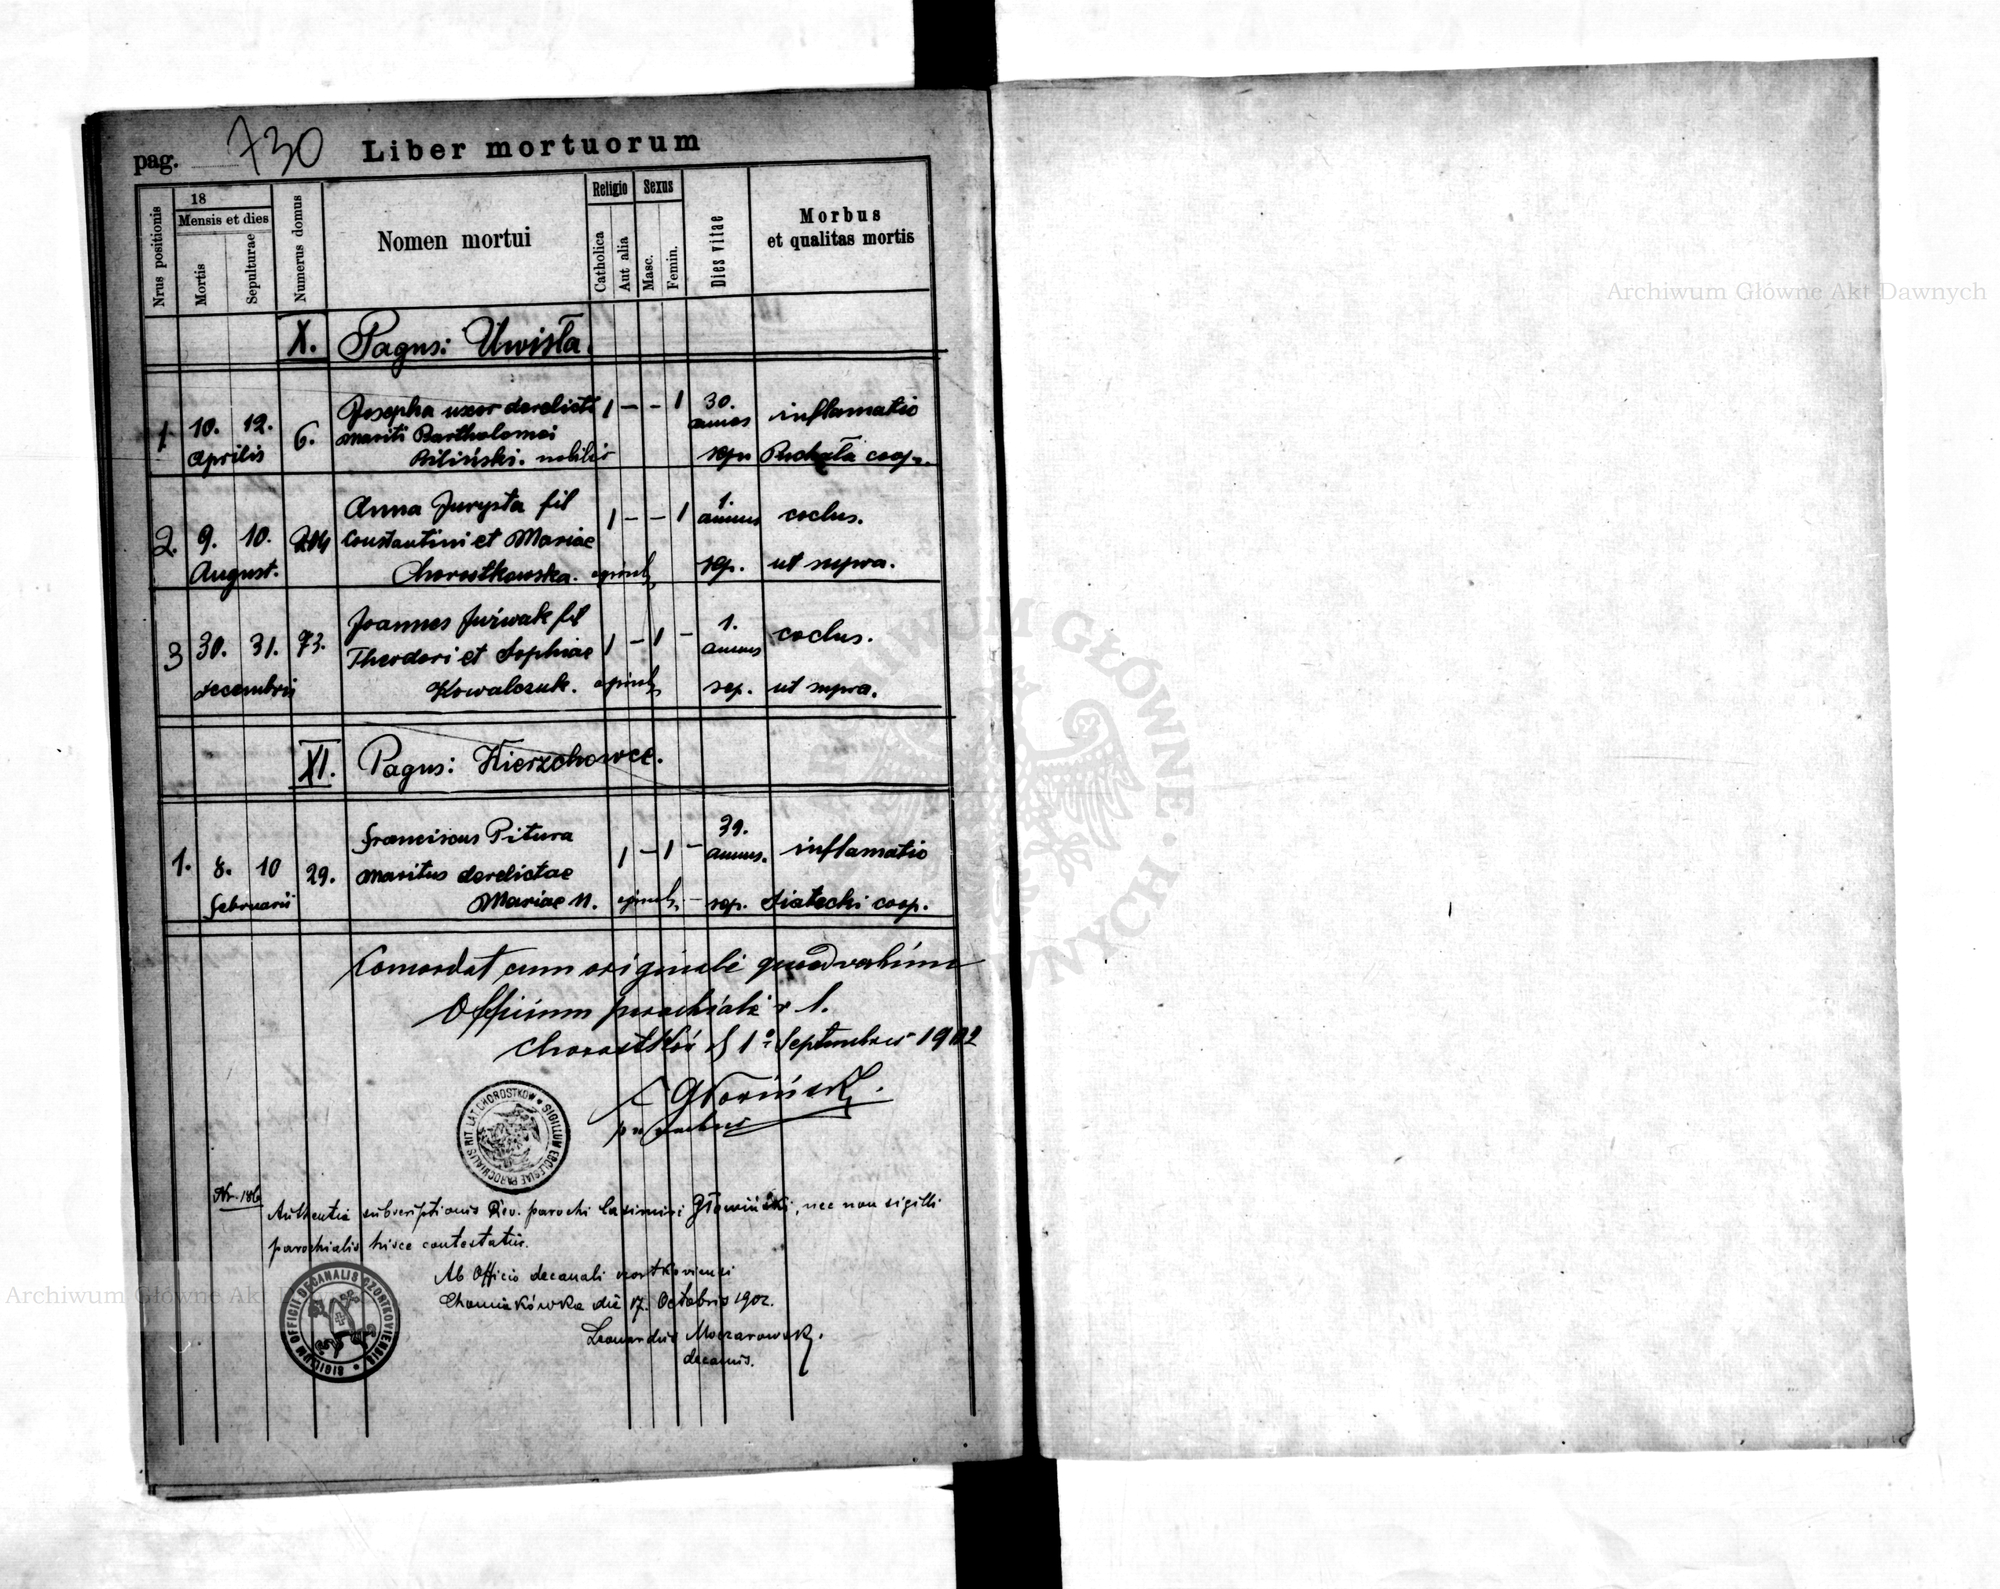 pag. 730 Liber mortuorum
Nrus positionis
18
Mensis et dies
Mortis
Sepulturae
Numerus domus
Nomen mortui
Religio
Catholica
Aut alia
Sexus
Masc.
Femin.
Dies vitae
Morbus
et qualitas mortis
X. Pagus: Uwisła.
1 10. 12. 6. Josepha uxor derelicti 1 – – 1 30. inflamatio
Aprilis mariti Bartholomei annos
Biliński. nobilis sep. Puchała coop.
2. 9. 10. 204 Anna Jurysta fil 1 – – 1 1. annus coclus.
August. Constantini et Mariae
Chorostkowska. agricola sep. ut supra.
3 30. 31. 73. Joannes Juźwak fil 1 – 1 – 1. coclus.
decembris Theodori et Sophiae annus
Kowalczuk. agricola sep. ut supra.
XI. Pagus: Wierzchowce.
1. 8. 10 29. Franciscus Pitura 1 – 1 – 39. inflamatio
februarii maritus derelictae annos.
Mariae N. agricola. – sep. Siatecki coop.
Concordat cum originali
Officium parochiale r. l.
Chorostków d 1º Septembris 1902
parochus
SIGILLUM ECCLESIAE PAROCHIALIS RIT. LAT. CHOROSTKOW
Nr. 186
Authentia subscriptionis Rev. parochi Casimiri Głowiński, nec non sigilli
parochialis hisce contestatur.
Ab Officio decanali czortkoviensi
Chomiakówka die 17. Octobris 1902.
Leonardus Moczarowski.
decanus.
SIGILLUM OFFICII DECANALIS CZORTKOVIENSIS
Archiwum Główne Akt Dawnych
Archiwum Główne Akt
ARCHIWUM GŁÓWNE AKT DAWNYCH